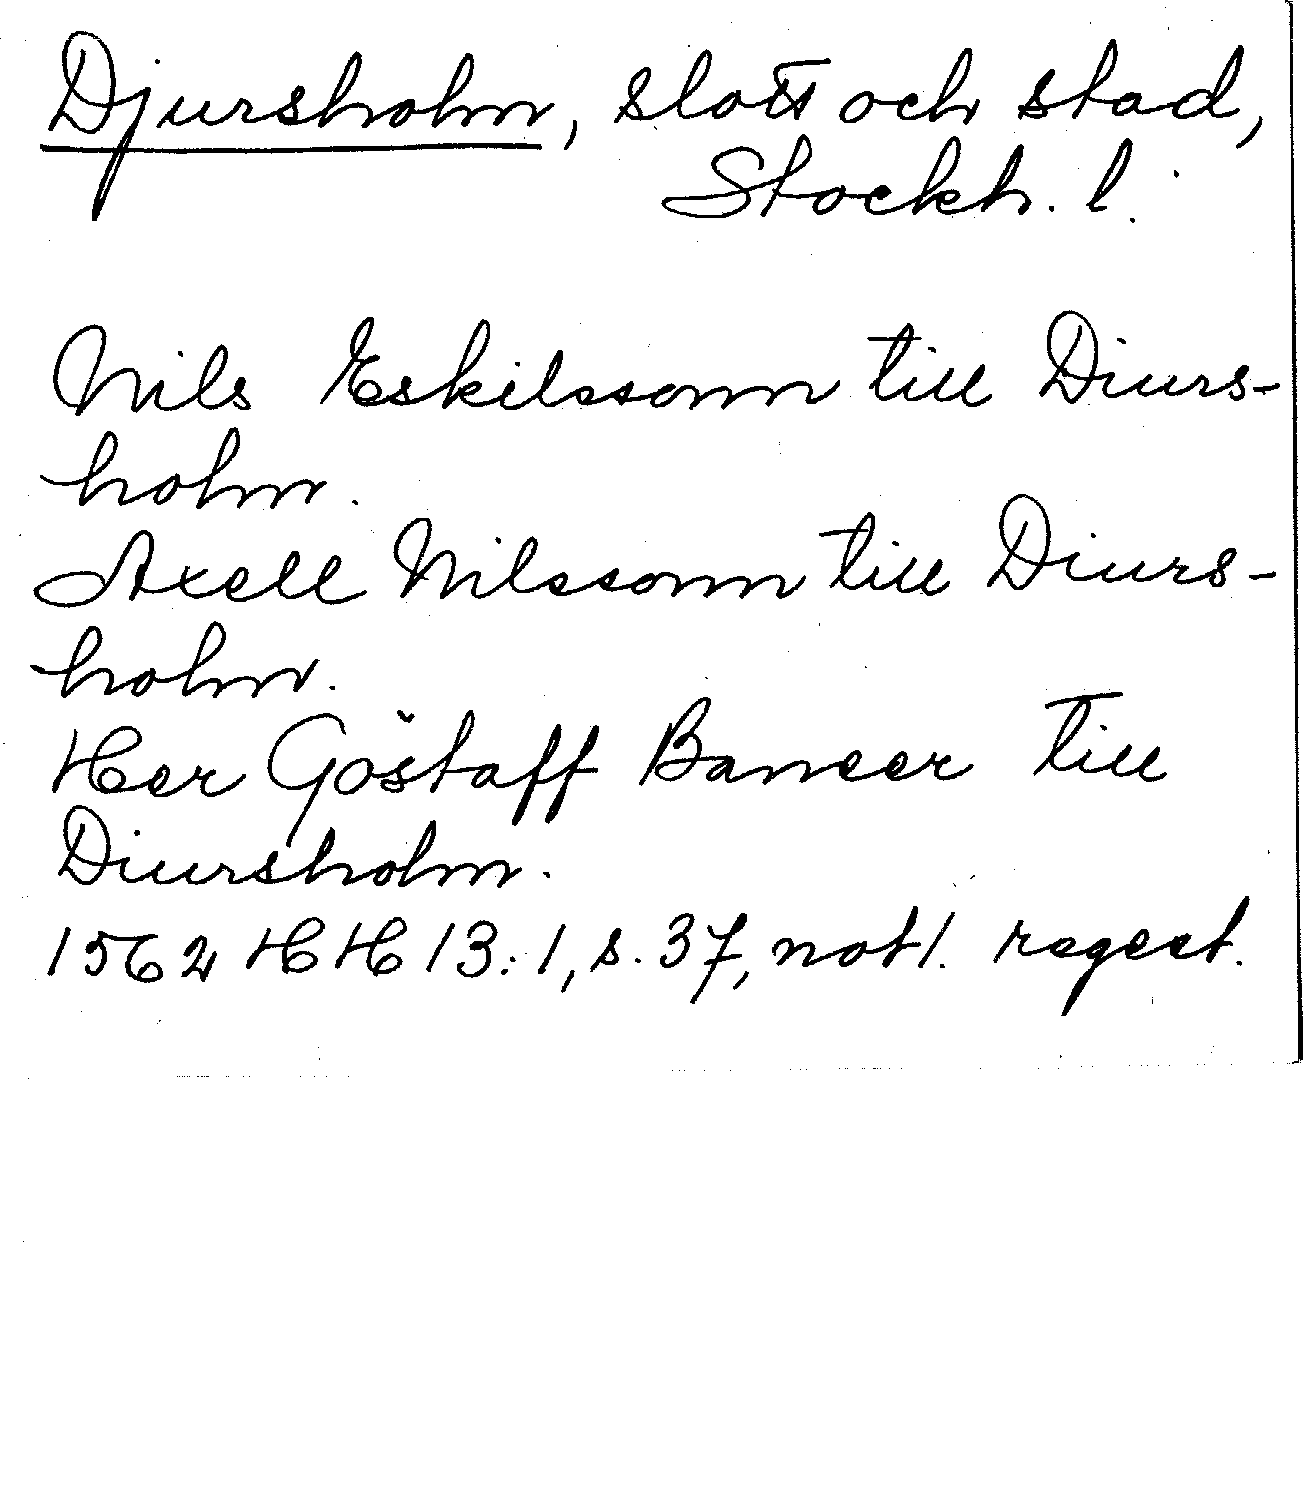 Djursholm, slott och stad,
Stockh. l.
Nils Eskilssonn till Diurs-
holm.
Axell Nilssonn till Diurs-
holm.
Her Göstaff Baneer till
Diursholm.
1562 HH 13:1, s. 37, not 1. regest.